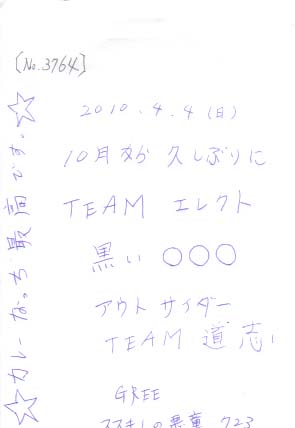 [No.3764]
2010.4.4(日)
10月から 久しぶりに
TEAM エレクト
黒い ○○○
アウトサイダー
TEAM 道志
GREE
ススキノの悪童 723
☆カレーなっち最高です。☆